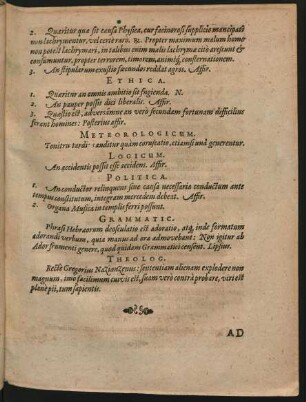 2. Quæritur quæ sit causa Physica, cur facinerosi supplicio mancipati
non lachrymentur, vel certè raro. R. Propter maximum malum homo
non potest lachrymari, in talibus enim malis lachrymæ citò arescunt &
consumuntur, propter terrorem, timorem, animiq; consternationem.
3. An stipularum exustio fœcundos reddat agros. Affir.
ETHICA.
1. Quæritur an omnis ambitio sit fugienda. N.
2. An pauper possit dici liberalis. Affir.
3. Quæstio est, adversámne an verò secundam fortunam difficilius
ferant homines: Posterius affir.
METEOROLOGICUM.
Tonitru tardiùs auditur quàm coruscatio, etiamsi unà generentur.
LOGICUM.
An accidentis possit esse accidens. Affir.
POLITICA.
1. An conductor relinquens sine causa necessaria conductum ante
tempus constitutum, integram mercedem debeat. Affir.
2. Organa Musica in templis ferri possunt.
GRAMMATIC.
Phrasi Hebræorum deosculatio est adoratio, atq; inde formatum
adorandi verbum, quia manus ad ora admovebant: Non igitur ab
Ador frumenti genere, quod quidam Grammatici censent. Lipsius.
THEOLOG.
Rectè Gregorius Nazianzenus: sententiam alienam explodere non
magnum, imo facillimum cuivis est, suam verò contrà probare, viri est
planè pii, tum sapientis.
AD